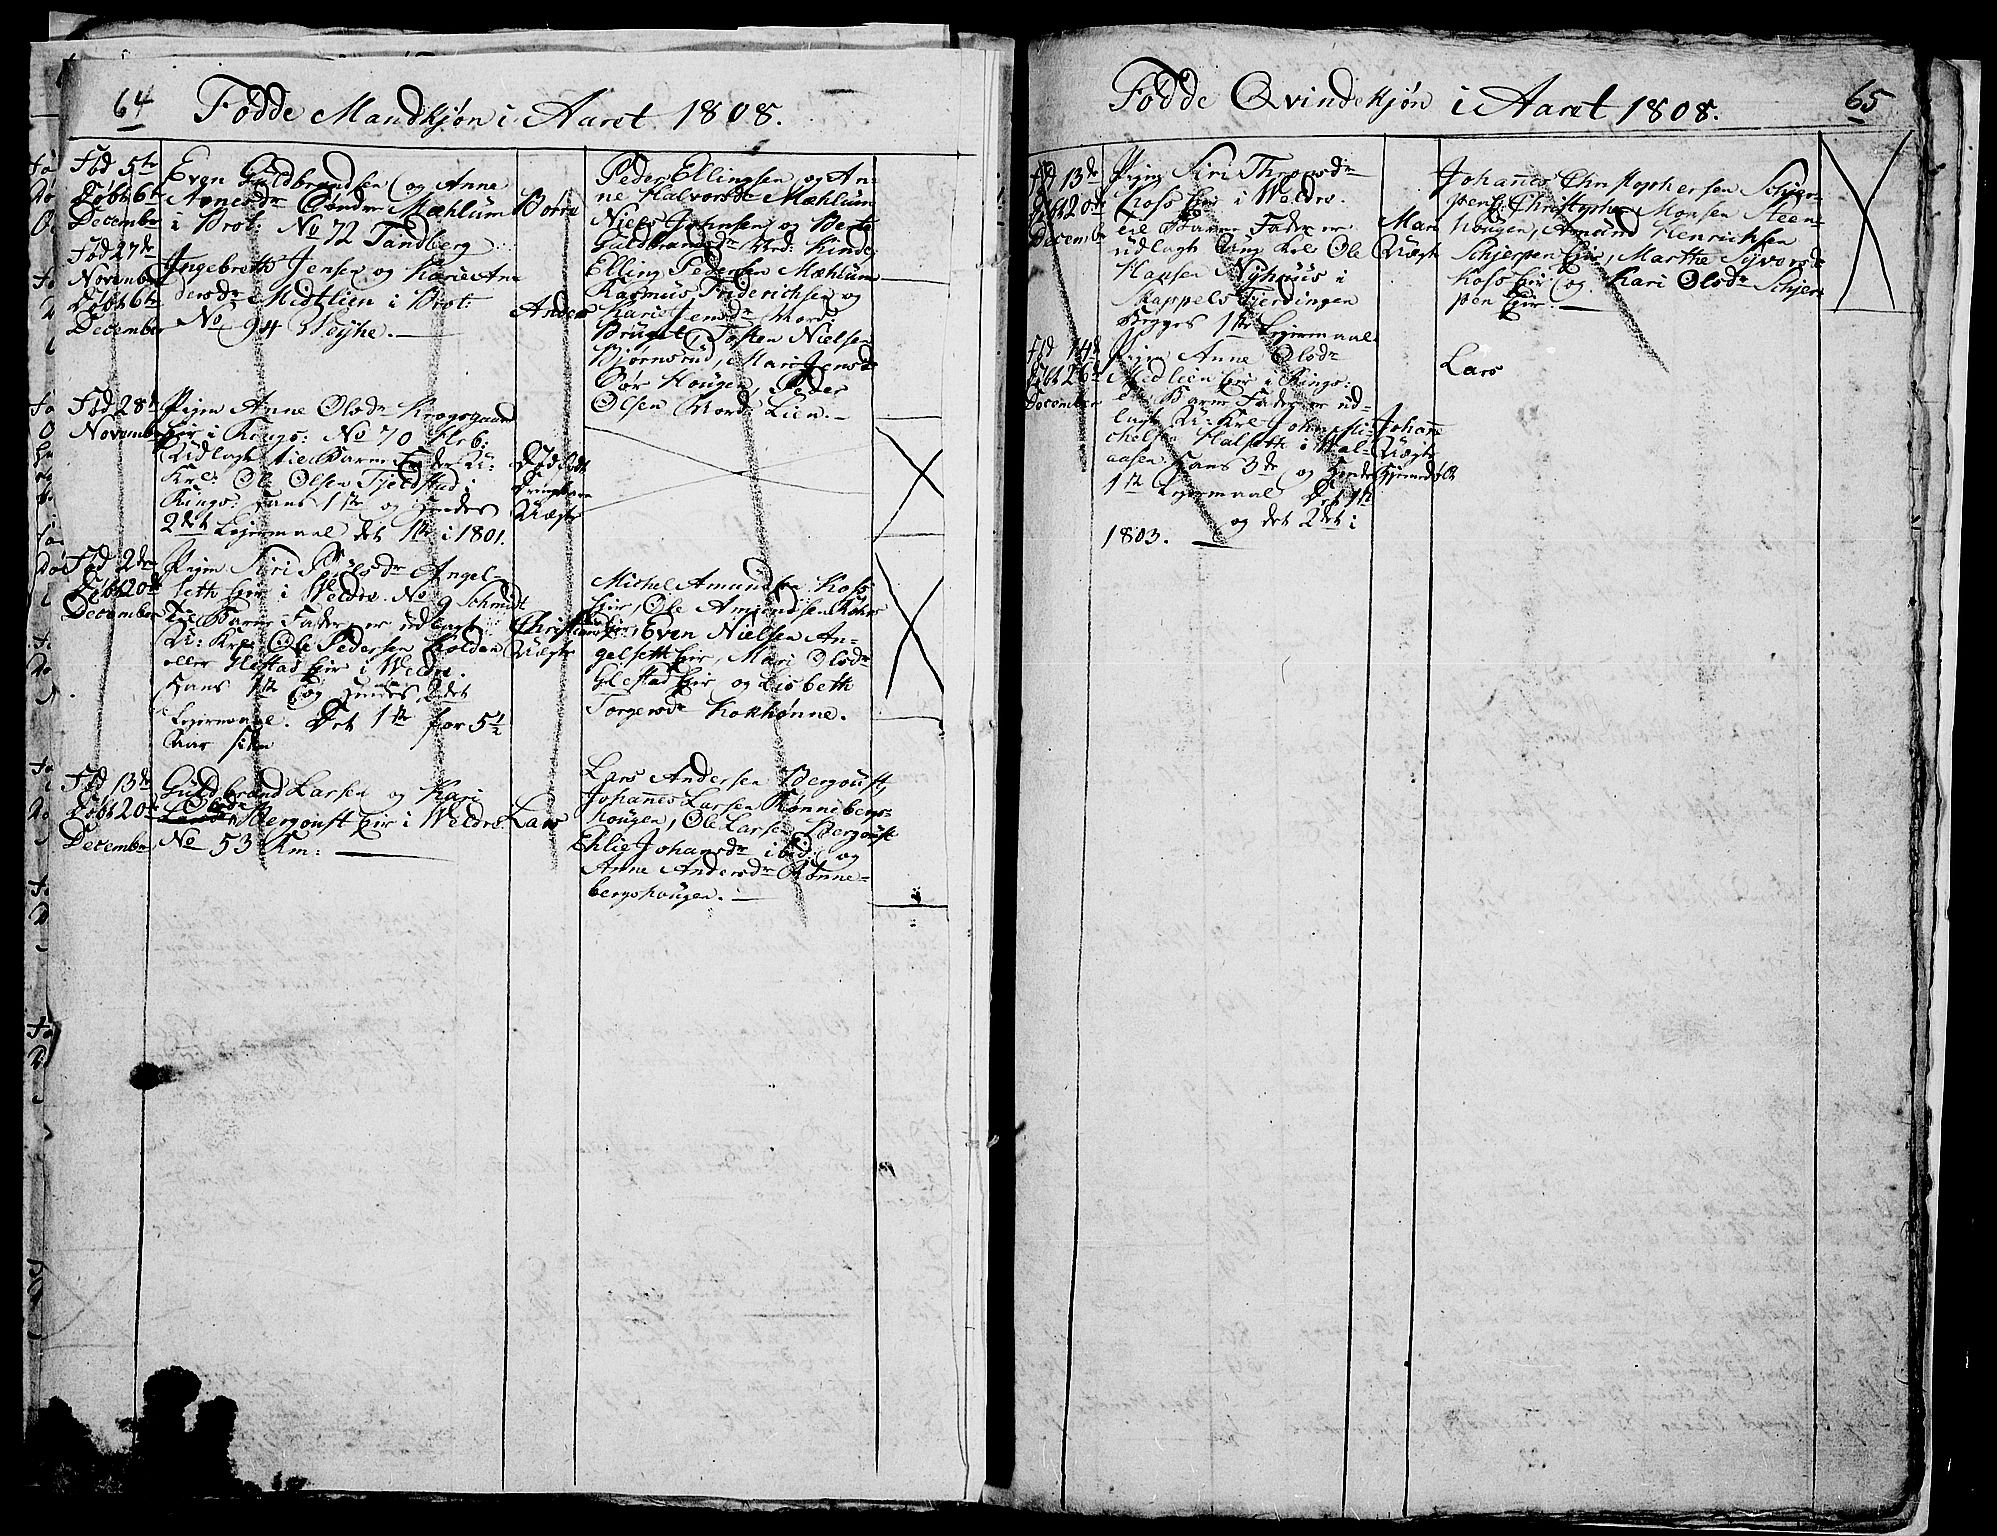 64
Fødde Mandkjøn i Aaret 1808.
Fød 5te
Døbt 6te
December
Even Guldbrandsen og Anne
Arnesdr Søndr Mæhlum
i Brot: No 72 Tandberg
Børre
Peder Ellingsen og An-
ne Halvorsdr Mæhlum
Niels Johnsen og Berte
Guldbrandsdr Nrd: Kinde
Elling Pedersen Mæhlum
Fød 27de
Novembr
Døbt 6te
December
Ingebreth Jensen og Kari An-
dersdr Midtlien i Brot:
No 94 Woyhe.
Anders
Rasmus Friderichsen og
Kari Jensdr Nord
Bruget, Tosten Nielsen
Bjørnsrud, Mari Jensdr
Sør Hougen, Peder
Olsen Nord Lien.
Fød 28de
Novembr
Pigen Anne Olsdr Krogsgaard
Eir i Rings: No 70
Udlagt til Barne Fader U:
Krl: Ole Olsen Fjeldstad i
Rings: Hans 1te og Hendes
2det Leiermaal det 1te i 1801.
Dødfødt
Drengebarn
Uægte
Fød 2den
Døbt 20de
December
Pigen Siri Povelsdr Angel-
seth Eir i Weldre No 9 Schmidt
Til Barne Fader er udlagt
U: Krl: Ole Pedersen Holden
eller Glestad Eir i Weldre.
Hans 1te og Hendes 2det
Leiermaal. Det 1te for 5 1/2
Aar siden
Christian
Uægte
Michel Amundsen Koss
Eir, Ole Amundsen
Eir, Even Nielsen An-
gelseth Eir, Mari Olsdr
Glestad Eir og Lisbeth
Torgersdr Kokhønne.
Fød 13de
Døbt 20de
December
Guldbrand Larsen og Kari
Olsdr
Larsdr Bergoust Eir i Weldre
No 53 Km:
Lars
Lars Andersen Bergoust,
Johannes Larsen Rønnebergs-
hougen, Ole Larsen Bergoust
Ehlie Johansdr ibid: og
Anne Andersdr Rønne-
bergshougen.
65
Fødde Qvindekjøn i Aaret 1808.
Fød 13de
Døbt 20de
December
Pigen Siri Thronsdr
Koss Eir i Weldre.
til Barne Fader er
udlagt Ung Krl Ole
Hansen Nyhuus i
Skappels Fjerdingen
Begges 1te Leiermaal
Mari
Uægte
Johannes Christophersen Schjer-
pen, Christopher Monsen Steen-
hougen, Amund Henrichsen
Schjerpen Eir, Marthe Syversdr
Koss Eir og Kari Olsdr Schjer-
pen Eir.
Fød 14de
Døbt 26de
December
Pigen Anne Olsdr
Midlien Eir i Rings:
til Barne Fader er ud-
lagt U: Krl John Mi-
chelsen Halseth i Wal-
aasen Hans 3de og Hendes
1te Leiermaal Det 1te
og det 2det i
1803.
Johanne
Uægte
Lars